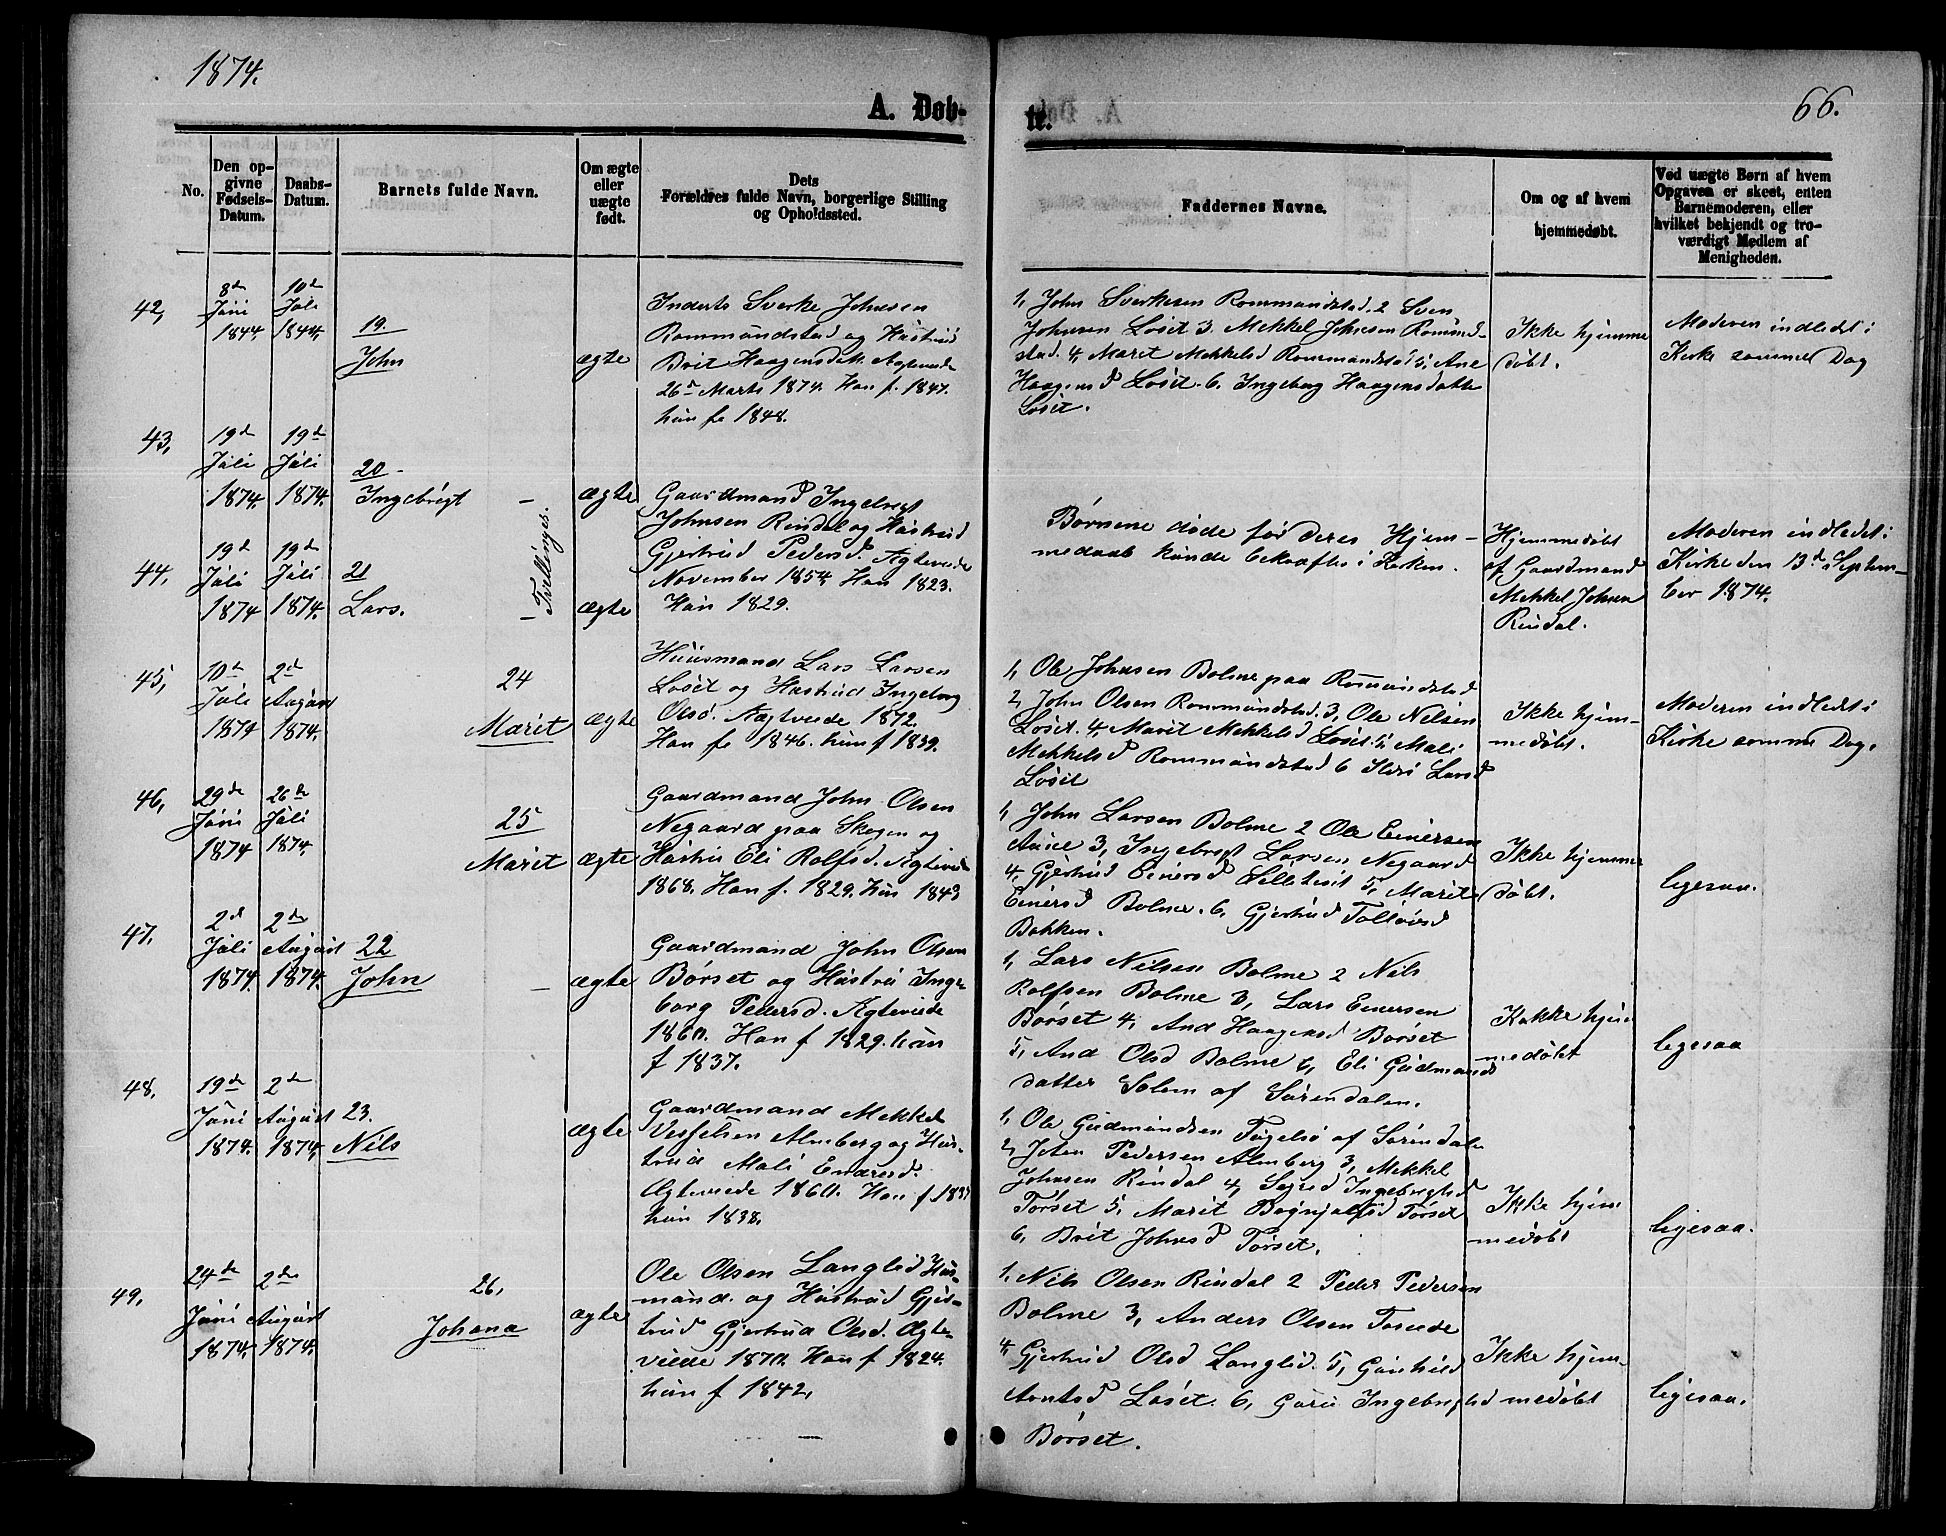 1874.
66.
A. Døb-
te.
No.
Den op-
givne
Fødsels-
Datum.
Daabs-
Datum.
Barnets fulde Navn.
Om ægte
eller
uægte
født.
Dets
Forældres fulde Navn, borgerlige Stilling
og Opholdssted.
Faddernes Navne.
Om og af hvem
hjemmedøbt.
Ved uægte Børn af hvem
Opgaven er skeet, enten
Barnemoderen, eller
hvilket bekjendt og tro-
værdigt Medlem af
Menigheden.
42,
8de
Juni
1844.
10de
Juli
1844.
19.
John
ægte
Inderts Sverke Johnsen
Rommundstad og Hustrue
Brit Haagensdtt.
26de Marts 1874. Han f. 1847.
hun fe 1848.
1, John Sverkesen Rommundstad, 2 Sven
Johnsen Løset 3. Mekkel Johnsen Romund-
stad. 4, Marit Mekkelsd Rommundstad 5, Ane
Haagensd Løset. 6, Ingeborg Haagensdatter
Løset.
Ikke hjemme
døbt.
Moderen indledet i
Kirke samme Dag
43,
19de
Juli
1874.
19de
Juli
1874.
20
Ingebrigt
-
Tvillinger.
ægte
Gaardmand Ingebrigt
Johnsen Rindal og Hustrud
Gjertrud Pedersd. Ægteviede
November 1854 Han 1823.
Hun 1829.
Børnene døde før deres Hjem-
medaab kunde bekræftes i Kirken.
Hjemmedøbt
af Gaardmand
Mekkel Johnsen
Rindal.
Moderen indledet i
Kirke den 13de Septem-
ber 1874.
44,
19de
Juli
1874
19de
Juli
1874.
21
Lars.
-
ægte
45,
10de
Juli
1874
2d
August
1874.
24
Marit
ægte
Huusmand Lars Larsen
Løset og Hustrud Ingeborg
Olsd. Ægteviede 1872.
Han fe 1846. hun f 1839.
1, Ole Johnsen Bolme paa Rommundstad
2, John Olsen Rommundstad. 3, Ole Nilsen
Løset. 4, Marit Mekkelsd Løset. 5, Mali
Mekkelsd Rommundstad 6 Larsd
Løset
Ikke hjem-
medøbt.
Moderen indledet i
Kirke samme Dag.
46,
29de
Juni
1874
26de
Juli
1874.
25
Marit
ægte
Gaardmand John Olsen
Negaard paa Skogen og
Hustru Eli Rolfsd. Ægteviede
1868. Han f. 1829. hun 1843
1, John Larsen Bolme 2 Ole Einersen
Aune 3, Ingebrigt Larsen Negaard
4, Gjertrud Einersd Lilletvit 5, Marit
Einersd Bolme. 6, Gjertrud
Bakken.
Ikke hjemme
døbt.
ligesaa.
47.
2d
Juli
1874.
2de
August
1874.
22
John
-
ægte
Gaardmand John Olsen
Børset og Hustru Inge
borg Pedersd. Ægteviede
1860. Han f 1829. hun
f 1837.
1, Lars Nilsen Bolme 2 Nils
Rolfsen Bolme 3, Lars Einersen
Børset 4, And Haagensd Børset
5, And Olsd Bolme 6, Eli Gudmunds
datter Solem af Surendalen.
hjem
medøbt
ligesaa
48,
19de
Juni
1874.
2de
August
1874.
23.
Nils
ægte
Gaardmand Mekkel
Vesselsen Almberg og Hus-
trud Mali Enarsd.
Ægteviede 1860. Han f. 1837
hun 1838.
1, Ole Gudmundsen af Surendal
2, Pedersen Almberg 3, Mekkel
Johnsen Rindal 4, Ingebrigtsd
Tørset 5, Marit Tørset
6, Brit Johnsd Tørset.
Ikke hjem
medøbt
ligesaa.
49,
24de
Juni
1874.
2de
August
1874.
26,
Johana
ægte
Ole Olsen Langlid Hus-
mand. og Hustrud Gjer-
trud Gjertrud Olsd. Ægte-
viede 1870. Han f 1824.
hun f 1842,
1, Nils Olsen Rindal 2 Peder Pedersen
Bolme 3, Anders Olsen
4, Gjertrud Olsd Langlid. 5, Gunhild
Arntsd Løset. 6, Guru Ingebrigtsd
Børset.
Ikke hjem-
medøbt
ligesaa.